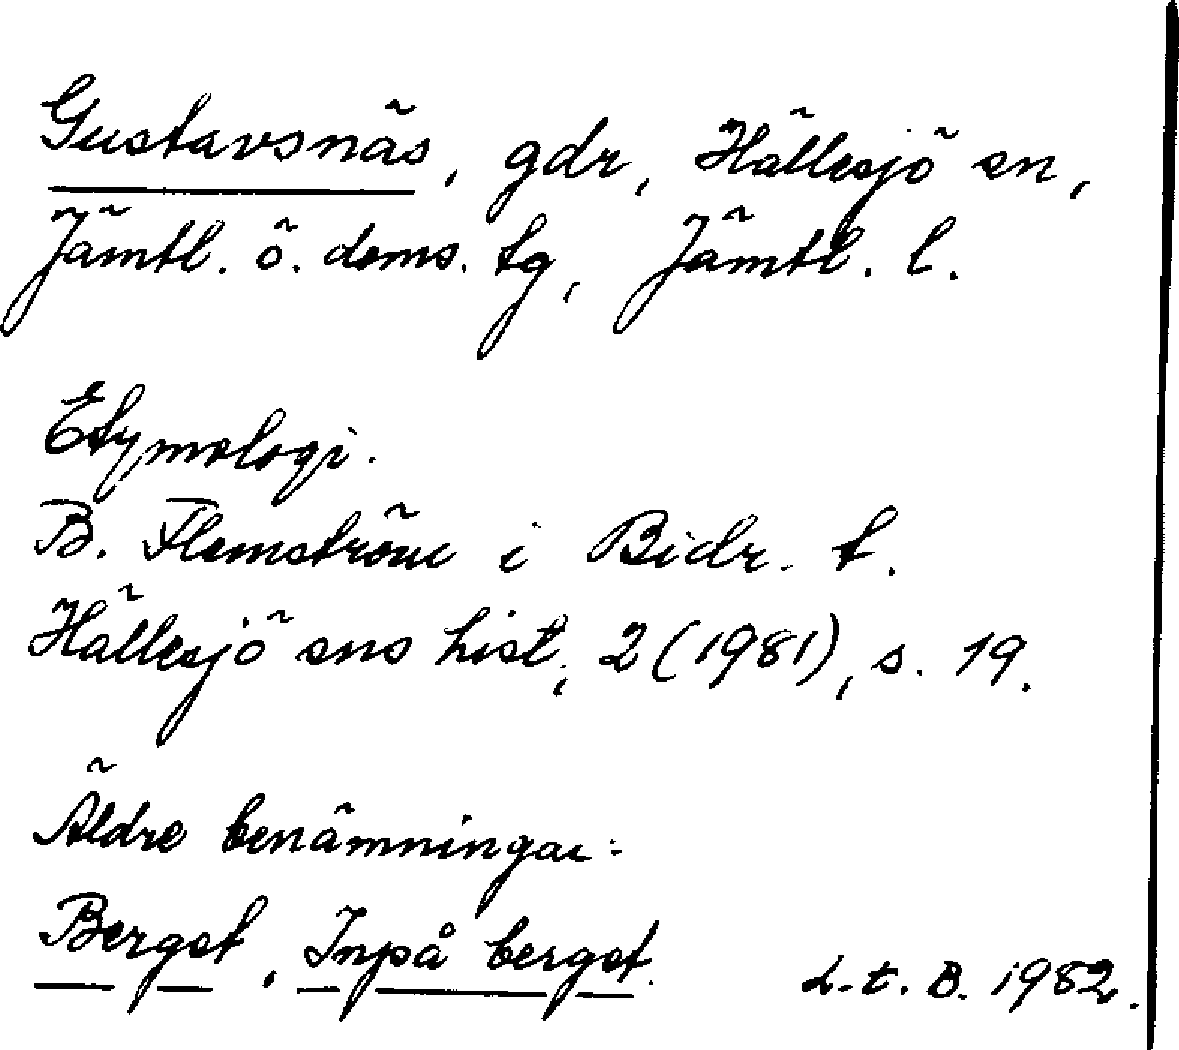 Gustavsnäs, gdr, Hällesjö sn,
Jämtl. ö. doms. tg, Jämtl. l.
Etymologi.
B. Flemström i Bidr. t.
Hällesjö sns hist, 2 (1981), s. 19.
Äldre benämningar:
Berget, Inpå berget.
L.t. B. 1982.